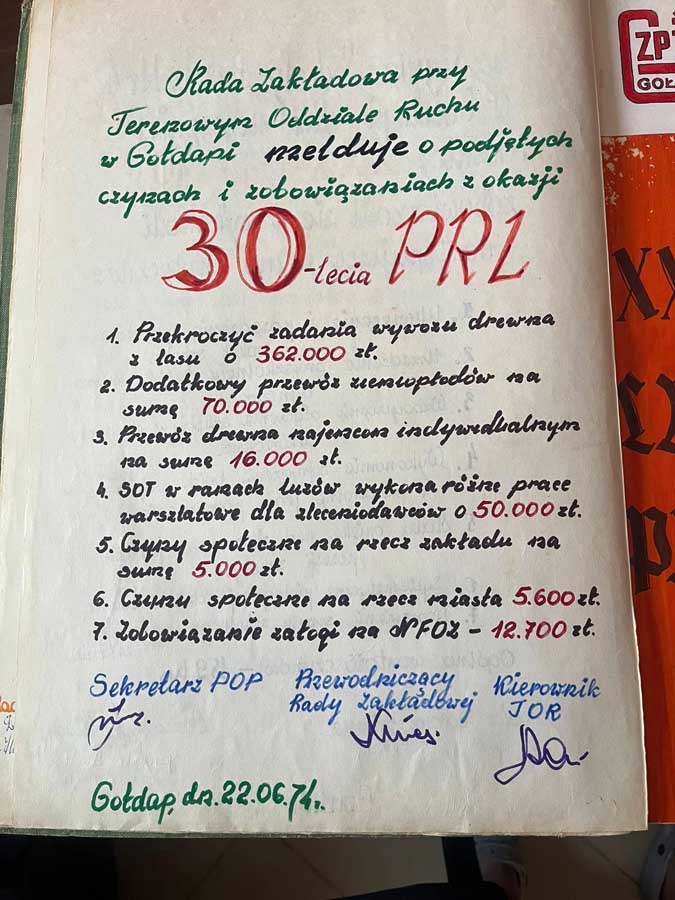 Rada Zakładowa przy
Terenowym Oddziale Ruchu
w Gołdapi melduje o podjętych
czynach i zobowiązaniach z okazji
30-lecia PRL
1. Przekroczyć zadania wywozu drewna
z lasu o 362.000 zł.
2. Dodatkowy przewóz ziemiopłodów na
sumę 70.000 zł.
3. Przewóz drewna najemcom indywidualnym
na sumę 16.000 zł.
4. SOT w ramach luzów wykona różne prace
warsztatowe dla zleceniodawców o 50.000 zł.
5. Czyny społeczne na rzecz zakładu na
sumę 5.000 zł.
6. Czyny społeczne na rzecz miasta 5.600 zł.
7. Zobowiązanie załogi na NFOZ - 12.700 zł.
Sekretarz POP
Przewodniczący
Rady Zakładowej
Kierownik
TOR
Gołdap, dn. 22.06.74r.